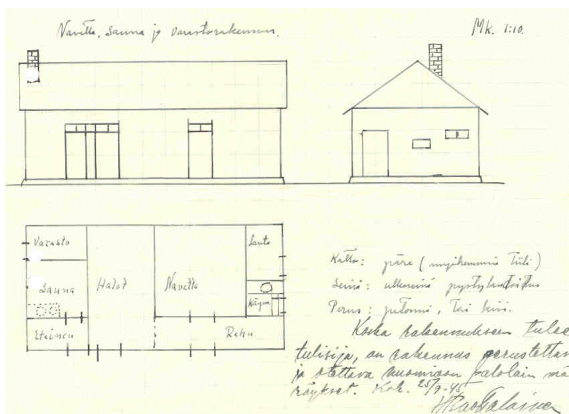 Navetta, sauna ja varastorakennus.
Mk. 1:10.
Varasto
Sauna
Eteinen
Halot
Navetta
Lanta
Rehu
Katto: päre (myöhemmin tiili)
Seinä: ulkoseinä pystylaudoitus
Perus: petoni, tai kivi.
Koska rakennukseen tulee
tulisija, on rakennus perustettava
ja otettava huomioon palolain mä
räykset. Kok. 25/9-45